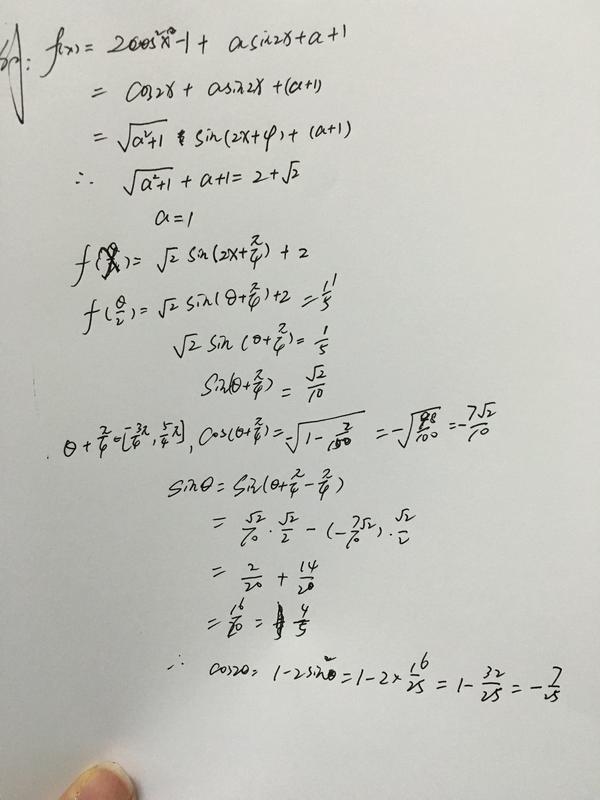 解: f(x) = 2cos²x-1 + asin2x+a+1
= cos2x + asin2x + (a+1)
= √(a²+1) sin(2x+φ) + (a+1)
∴ √(a²+1) + a+1 = 2+√2
a=1
f(x) = √2 sin(2x+π/4) + 2
f(θ/2) = √2 sin(θ+π/4)+2 = 11/5
√2 sin(θ+π/4) = 1/5
sin(θ+π/4) = √2/10
θ+π/4∈[-3π/4, 5/4π], cos(θ+π/4) = -√(1-2/100) = -√(98/100) = -7√2/10
sinθ = sin(θ+π/4-π/4)
= √2/10·√2/2 - (-7√2/10)·√2/2
= 2/20 + 14/20
= 16/20 = 4/5
∴ cos2θ = 1-2sin²θ = 1-2×16/25 = 1-32/25 = -7/25